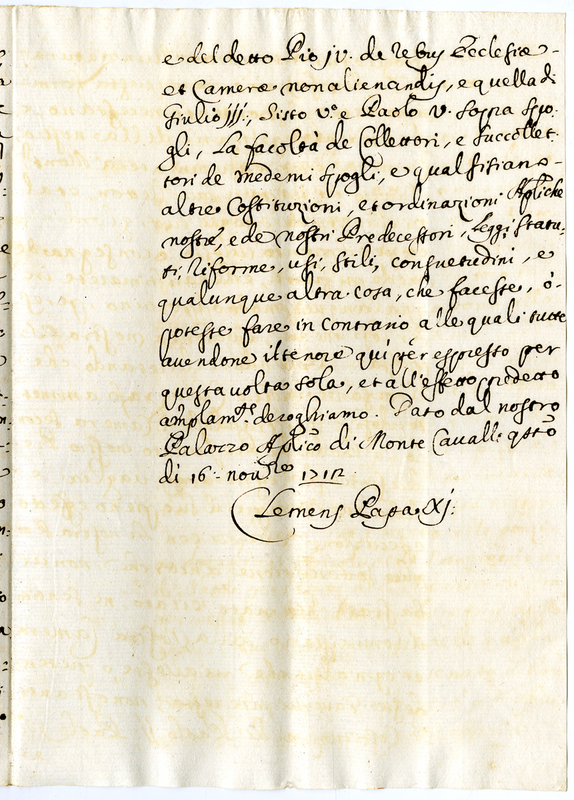 e del detto Pio jv. de rebus Ecclesiæ -
et Cameræ non alienandis, e quella di
Giulio jjj., Sisto v.º e Paolo v. sopra spo-
gli, La facoltà de Collettori, e succollet-
tori de medemi spogli, e qual sisiano -
altre Costituzioni, et ordinazioni Apliche
nostre, e de nostri Predecessori, Leggi, statu-
ti, riforme, usi, stili, consuetudini, e
qualunque altra cosa, che facesse, ò
potesse fare in contrario alle quali tutte
avendone il tenore qui per espresso per
questa volta sola, et all'effetto predetto
amplam.te deroghiamo. Dato dal nostro
Palazzo Aplico di Monte Cavallo qsto
di 16 - nov.bre
Clemens Papa Xj.